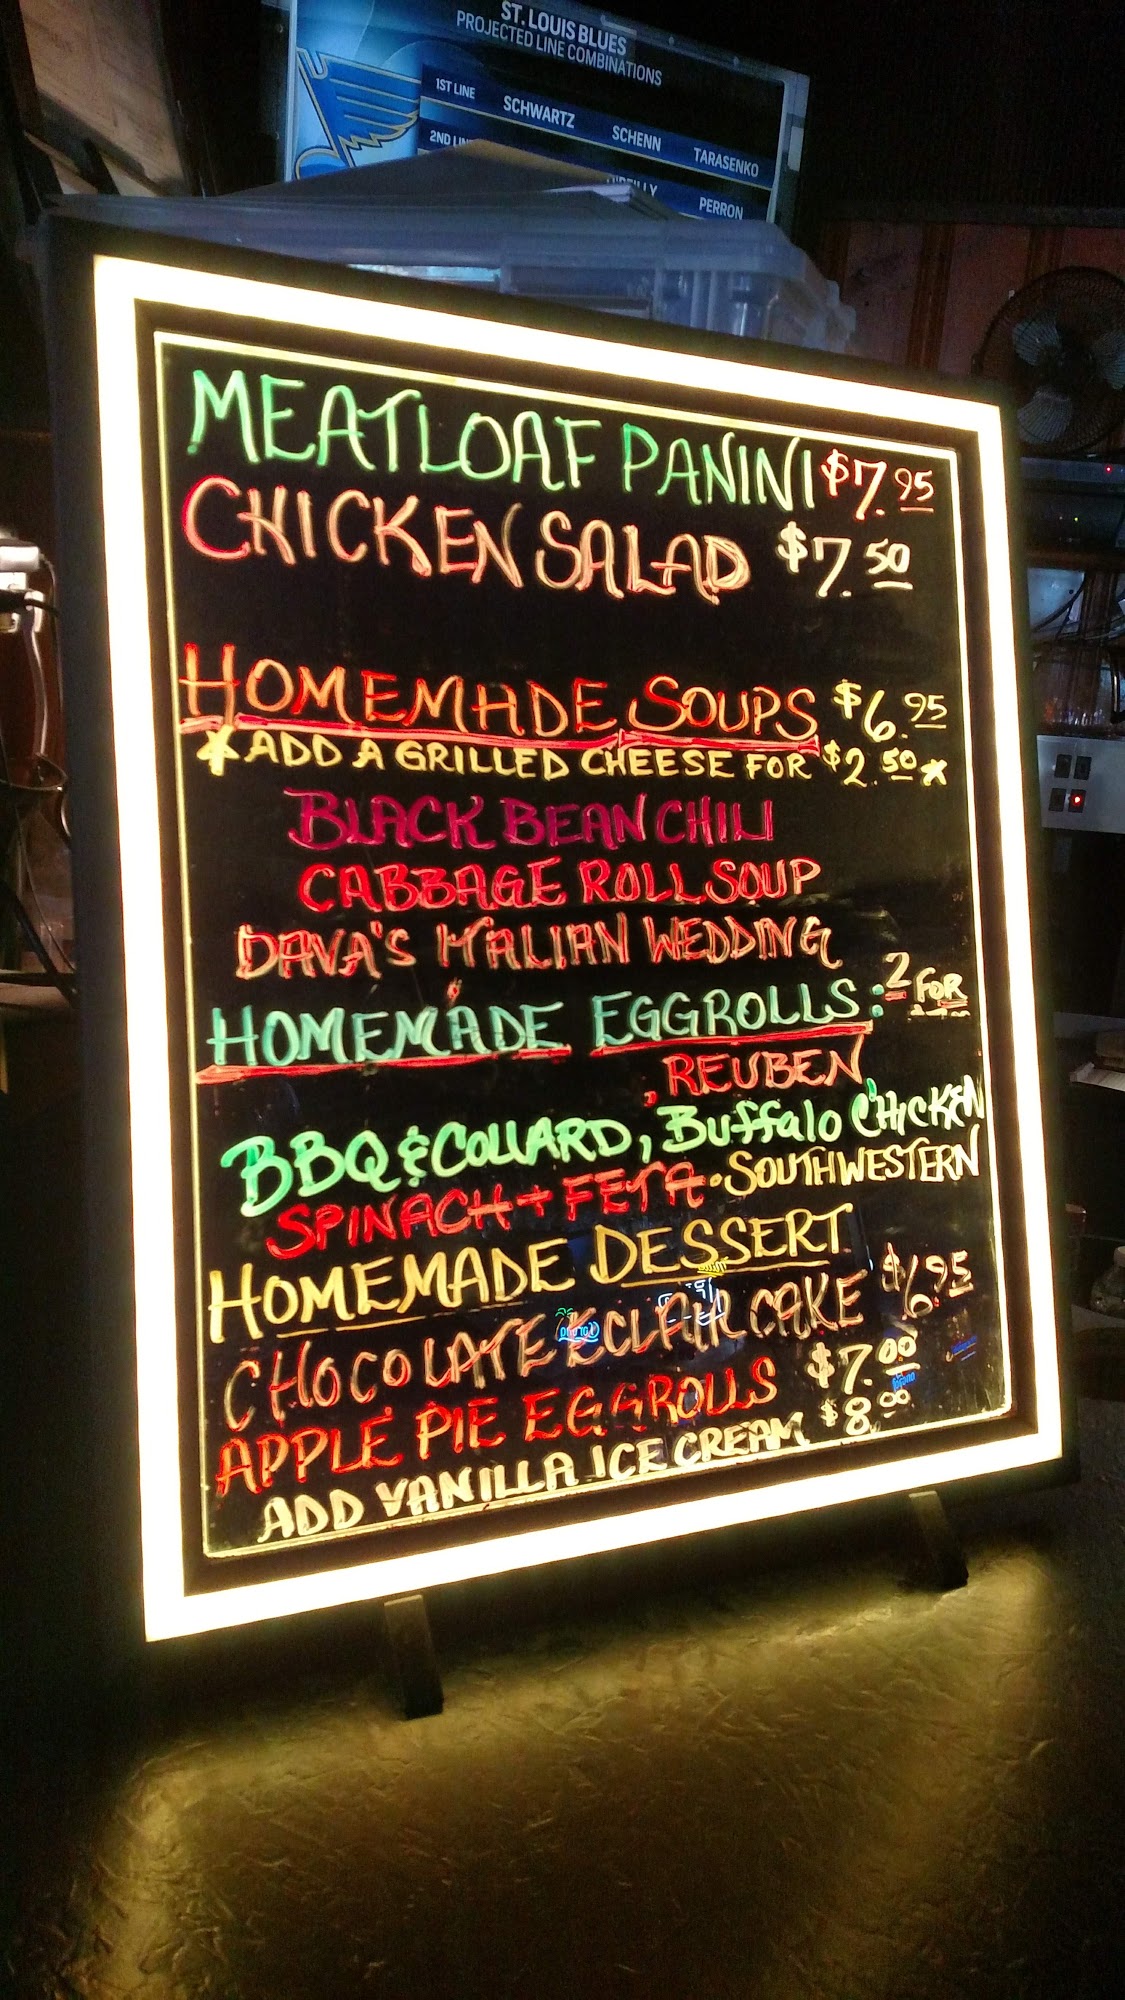 ST. LOUIS BLUES
PROJECTED LINE COMBINATIONS
1ST LINE SCHWARTZ SCHENN TARASENKO
2ND PERRON
MEATLOAF PANINI $7.95
CHICKEN SALAD $7.50
HOMEMADE SOUPS $6.95
*ADD A GRILLED CHEESE FOR $2.50*
BLACK BEAN CHILI
CABBAGE ROLL SOUP
DAVA'S ITALIAN WEDDING
HOMEMADE EGGROLLS: 2 FOR
, REUBEN,
BBQ & COLLARD, Buffalo CHICKEN
SPINACH + FETA · SOUTHWESTERN
HOMEMADE DESSERT
CHOCOLATE ECLAIR CAKE $6.95
APPLE PIE EGGROLLS $7.00
ADD VANILLA ICE CREAM $8.00